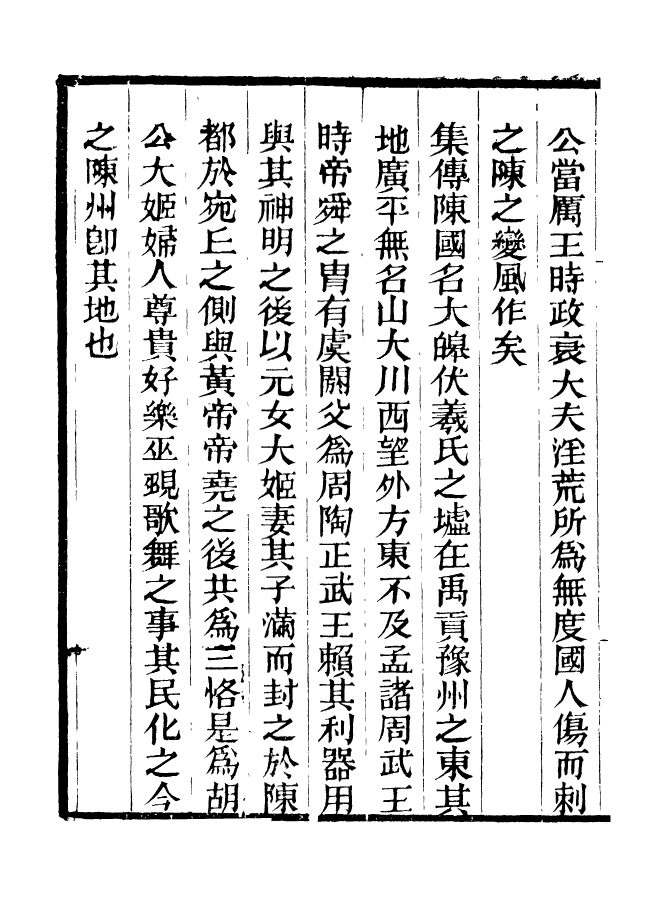 公當厲王時政衰大夫淫荒所爲無度國人傷而刺
之陳之變風作矣
集傳陳國名大皥伏羲氏之墟在禹貢豫州之東其
地廣平無名山大川西望外方東不及孟諸周武王
時帝舜之胄有虞閼父爲周陶正武王賴其利器用
與其神明之後以元女大姬妻其子滿而封之於陳
都於宛丘之側與黃帝帝堯之後共爲三恪是爲胡
公大姬婦人尊貴好樂巫覡歌舞之事其民化之今
之陳州卽其地也